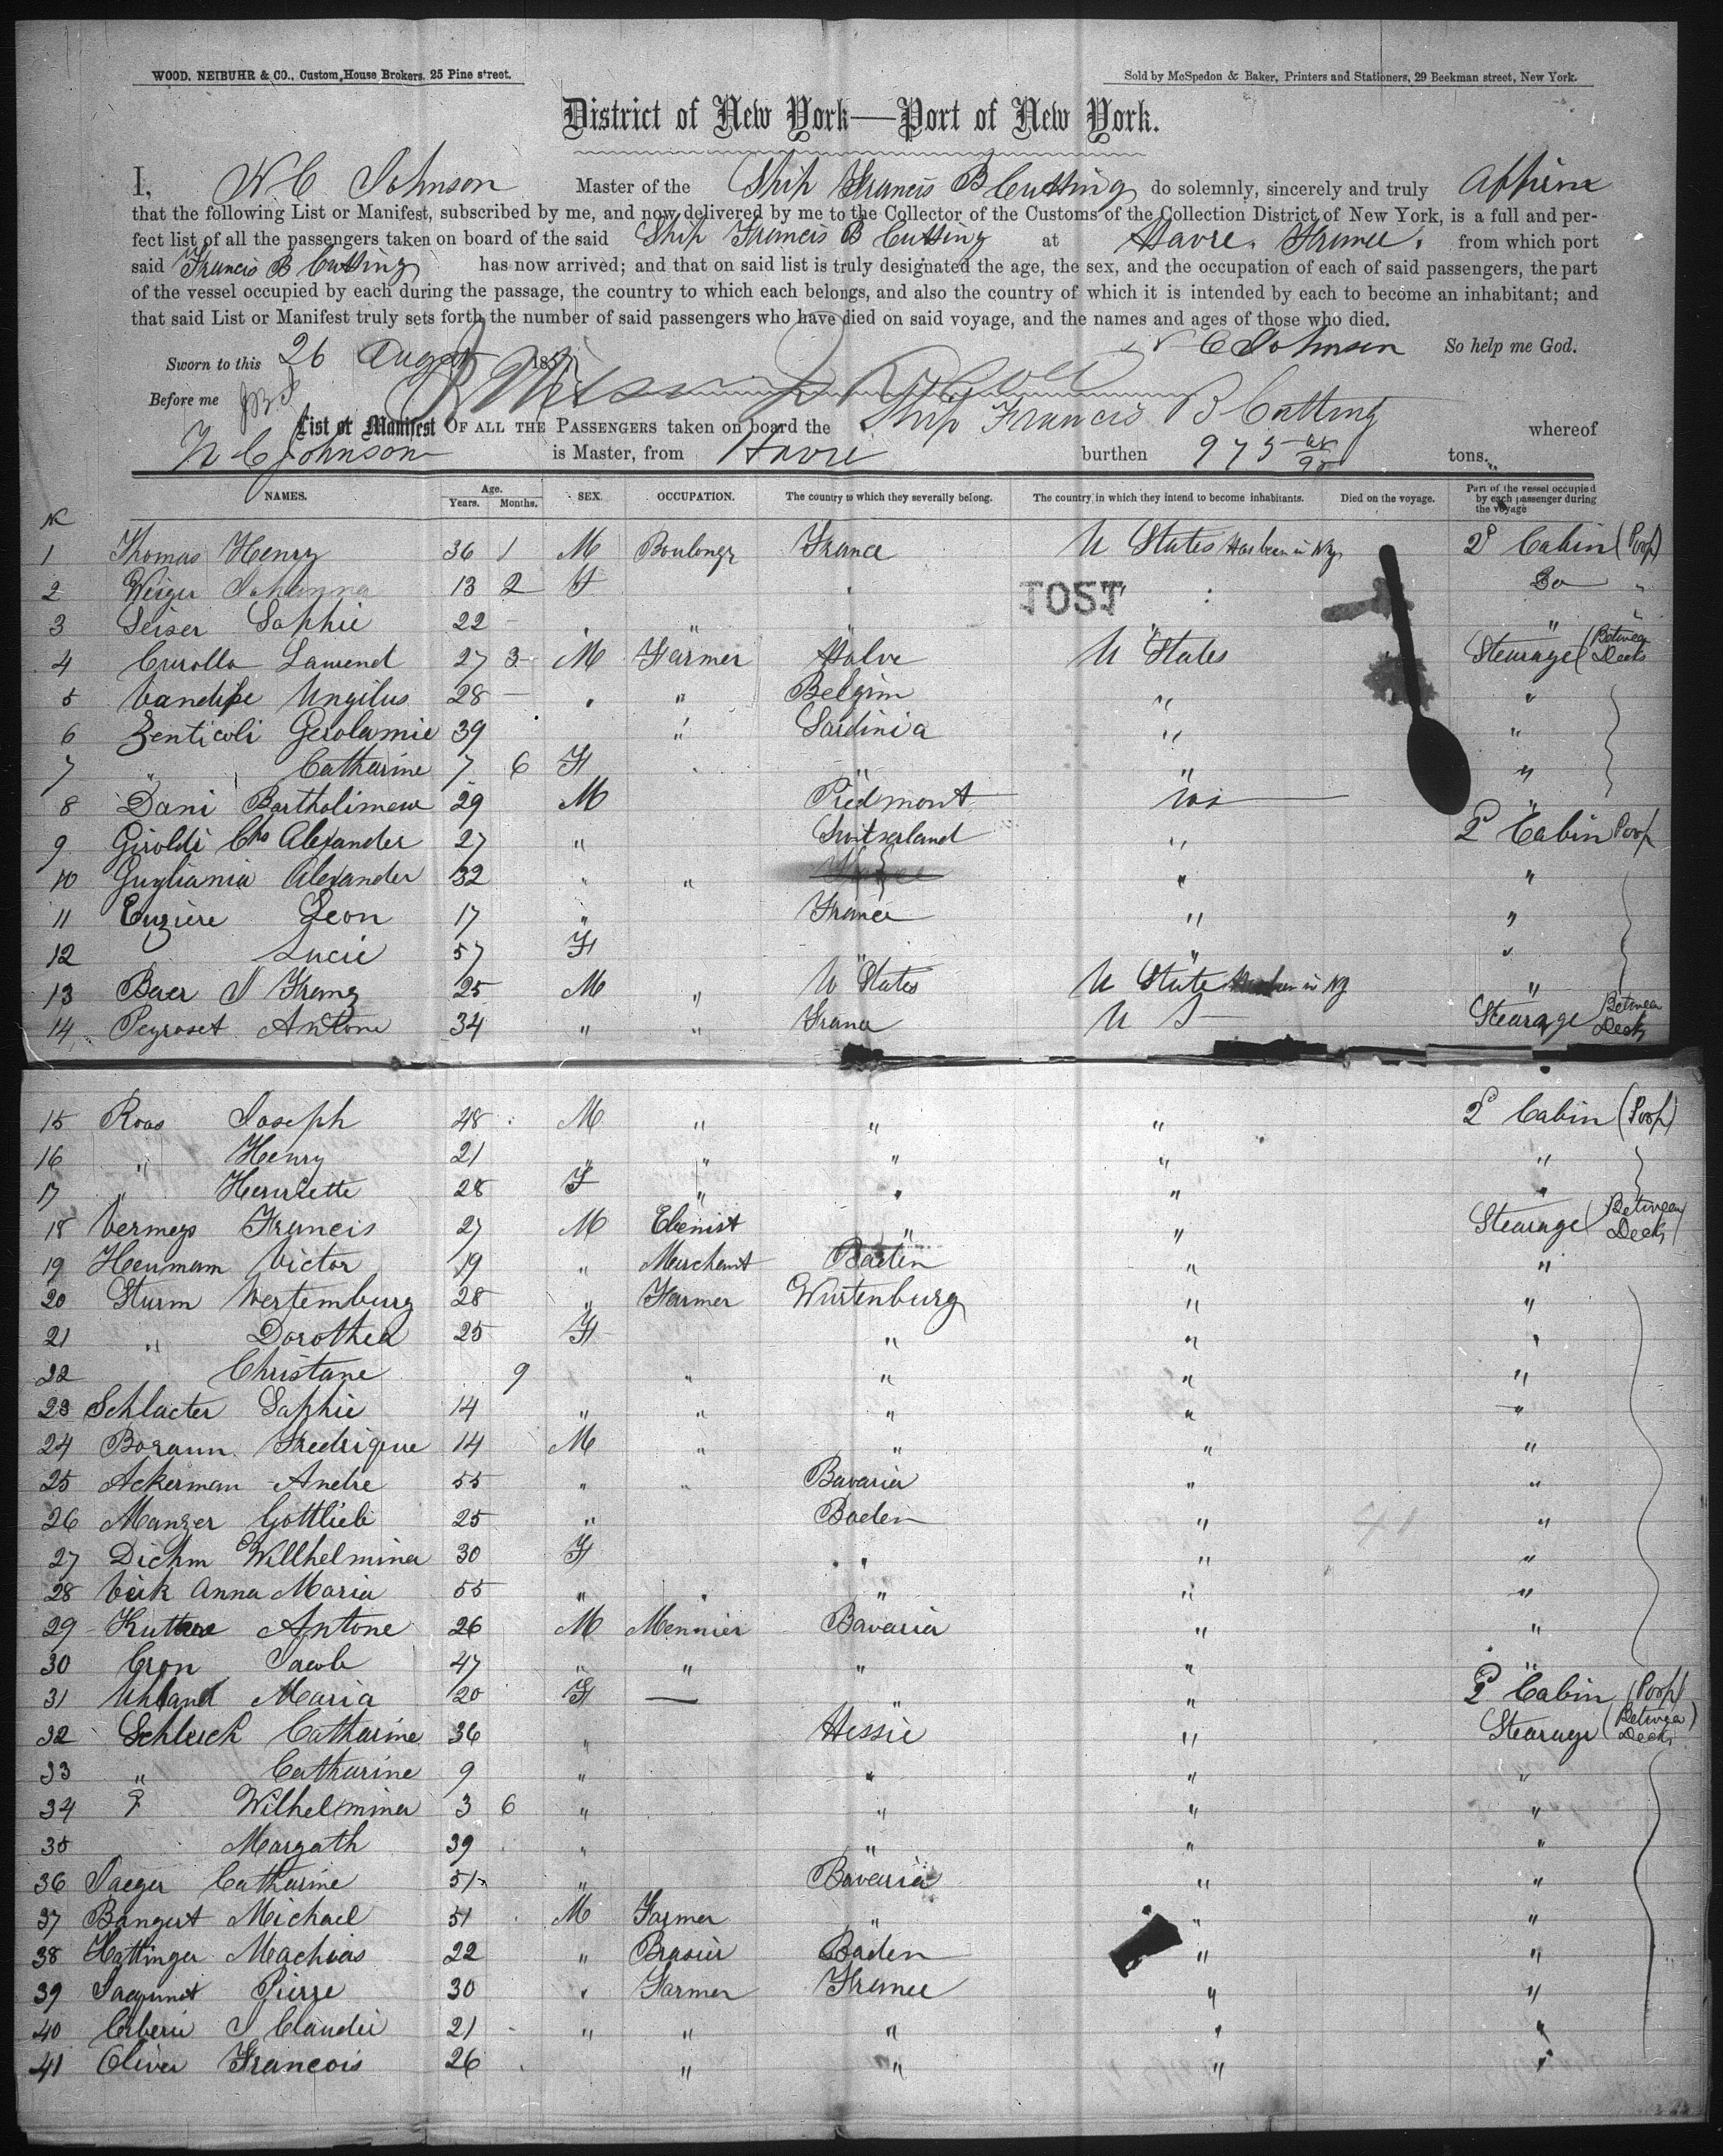 WOOD, NEIBUHR & CO., Custom House Brokers. 25 Pine street.
Sold by McSpedon & Baker, Printers and Stationers, 29 Beekman street, New York.
District of New York—Port of New York.
I, N C Johnson Master of the Ship Francis B Cutting do solemnly, sincerely and truly Affirm
that the following List or Manifest, subscribed by me, and now delivered by me to the Collector of the Customs of the Collection District of New York, is a full and per-
fect list of all the passengers taken on board of the said Ship Francis B Cutting at Havre, France. from which port
said Francis B Cutting has now arrived; and that on said list is truly designated the age, the sex, and the occupation of each of said passengers, the part
of the vessel occupied by each during the passage, the country to which each belongs, and also the country of which it is intended by each to become an inhabitant; and
that said List or Manifest truly sets forth the number of said passengers who have died on said voyage, and the names and ages of those who died.
Sworn to this 26 August 185 N C Johnson So help me God.
Before me
List or Manifest OF ALL THE PASSENGERS taken on board the Ship Francis B Cutting whereof
N C Johnson is Master, from Havre burthen 975 tons.
NAMES. Age. Years. Months. SEX. OCCUPATION. The country to which they severally belong. The country in which they intend to become inhabitants. Died on the voyage. Part of the vessel occupied by each passenger during the voyage
1 Thomas Henry 36 1 M France U States Has been in NY 2 Cabin (Poop)
2 Weiger Johanna 13 2 F Do "
1051
3 Seiser Sophie 22 " " " "
4 27 3 M Farmer U States Stearage (Between Decks
5 28 " Belgim " "
6 Zenticoli Gerolamie 39 " Sardinia " "
7 " Catharine 7 6 F " " "
8 Dani Bartholimew 29 M Piedmont "
9 Giroldi Chs Alexander 27 " Switserland " 2 Cabin Poop
10 Gugliania Alexander 32 " " " "
11 Euziere Leon 17 " France " "
12 Lucie 57 F " " "
13 Baer J Franz 25 M " U States U State Has been in NY "
14 Peyroset Antone 34 " " France U S Stearage Between Decks
15 Roas Joseph 48 M " " " 2 Cabin (Poop)
16 " Henry 21 " " " " "
17 " Henriette 28 F " " " "
18 Francis 27 M Ebenist " " Stearage (Between Decks)
19 Heumam Victor 19 " Merchant Baden " "
20 Sturm Wertemburg 28 " Farmer Wurtenburg " "
21 " Dorothea 25 F " " "
22 Christane 9 " " " "
23 Schlacter Sophie 14 " " " " "
24 Boraun Fredrique 14 M " " " "
25 Ackerman Andre 55 " " Bavaria " "
26 Manzer Gottlieb 25 " Baden " "
27 Diehm Willhelmina 30 F " " "
28 Anna Maria 55 " " " " "
29 Antone 26 M Mennier Bavaria " "
30 Cron Jacob 47 " " " " "
31 Uhland Maria 20 F — " " 2 Cabin (Poop)
32 Schlerch Catharine 36 " Hessie " Stearage (Between Decks)
33 " Catharine 9 " " " "
34 " Wilhelmina 3 6 " " " "
35 Margath 39 " " " "
36 Jaeger Catharine 51 " Bavaria " "
37 Bangert Michael 51 M Farmer " " "
38 Hattinger Machias 22 " Brasier Baden " "
39 Pierre 30 " Farmer France " "
40 J Claudie 21 " " " " "
41 Oliver Francois 26 " " " "